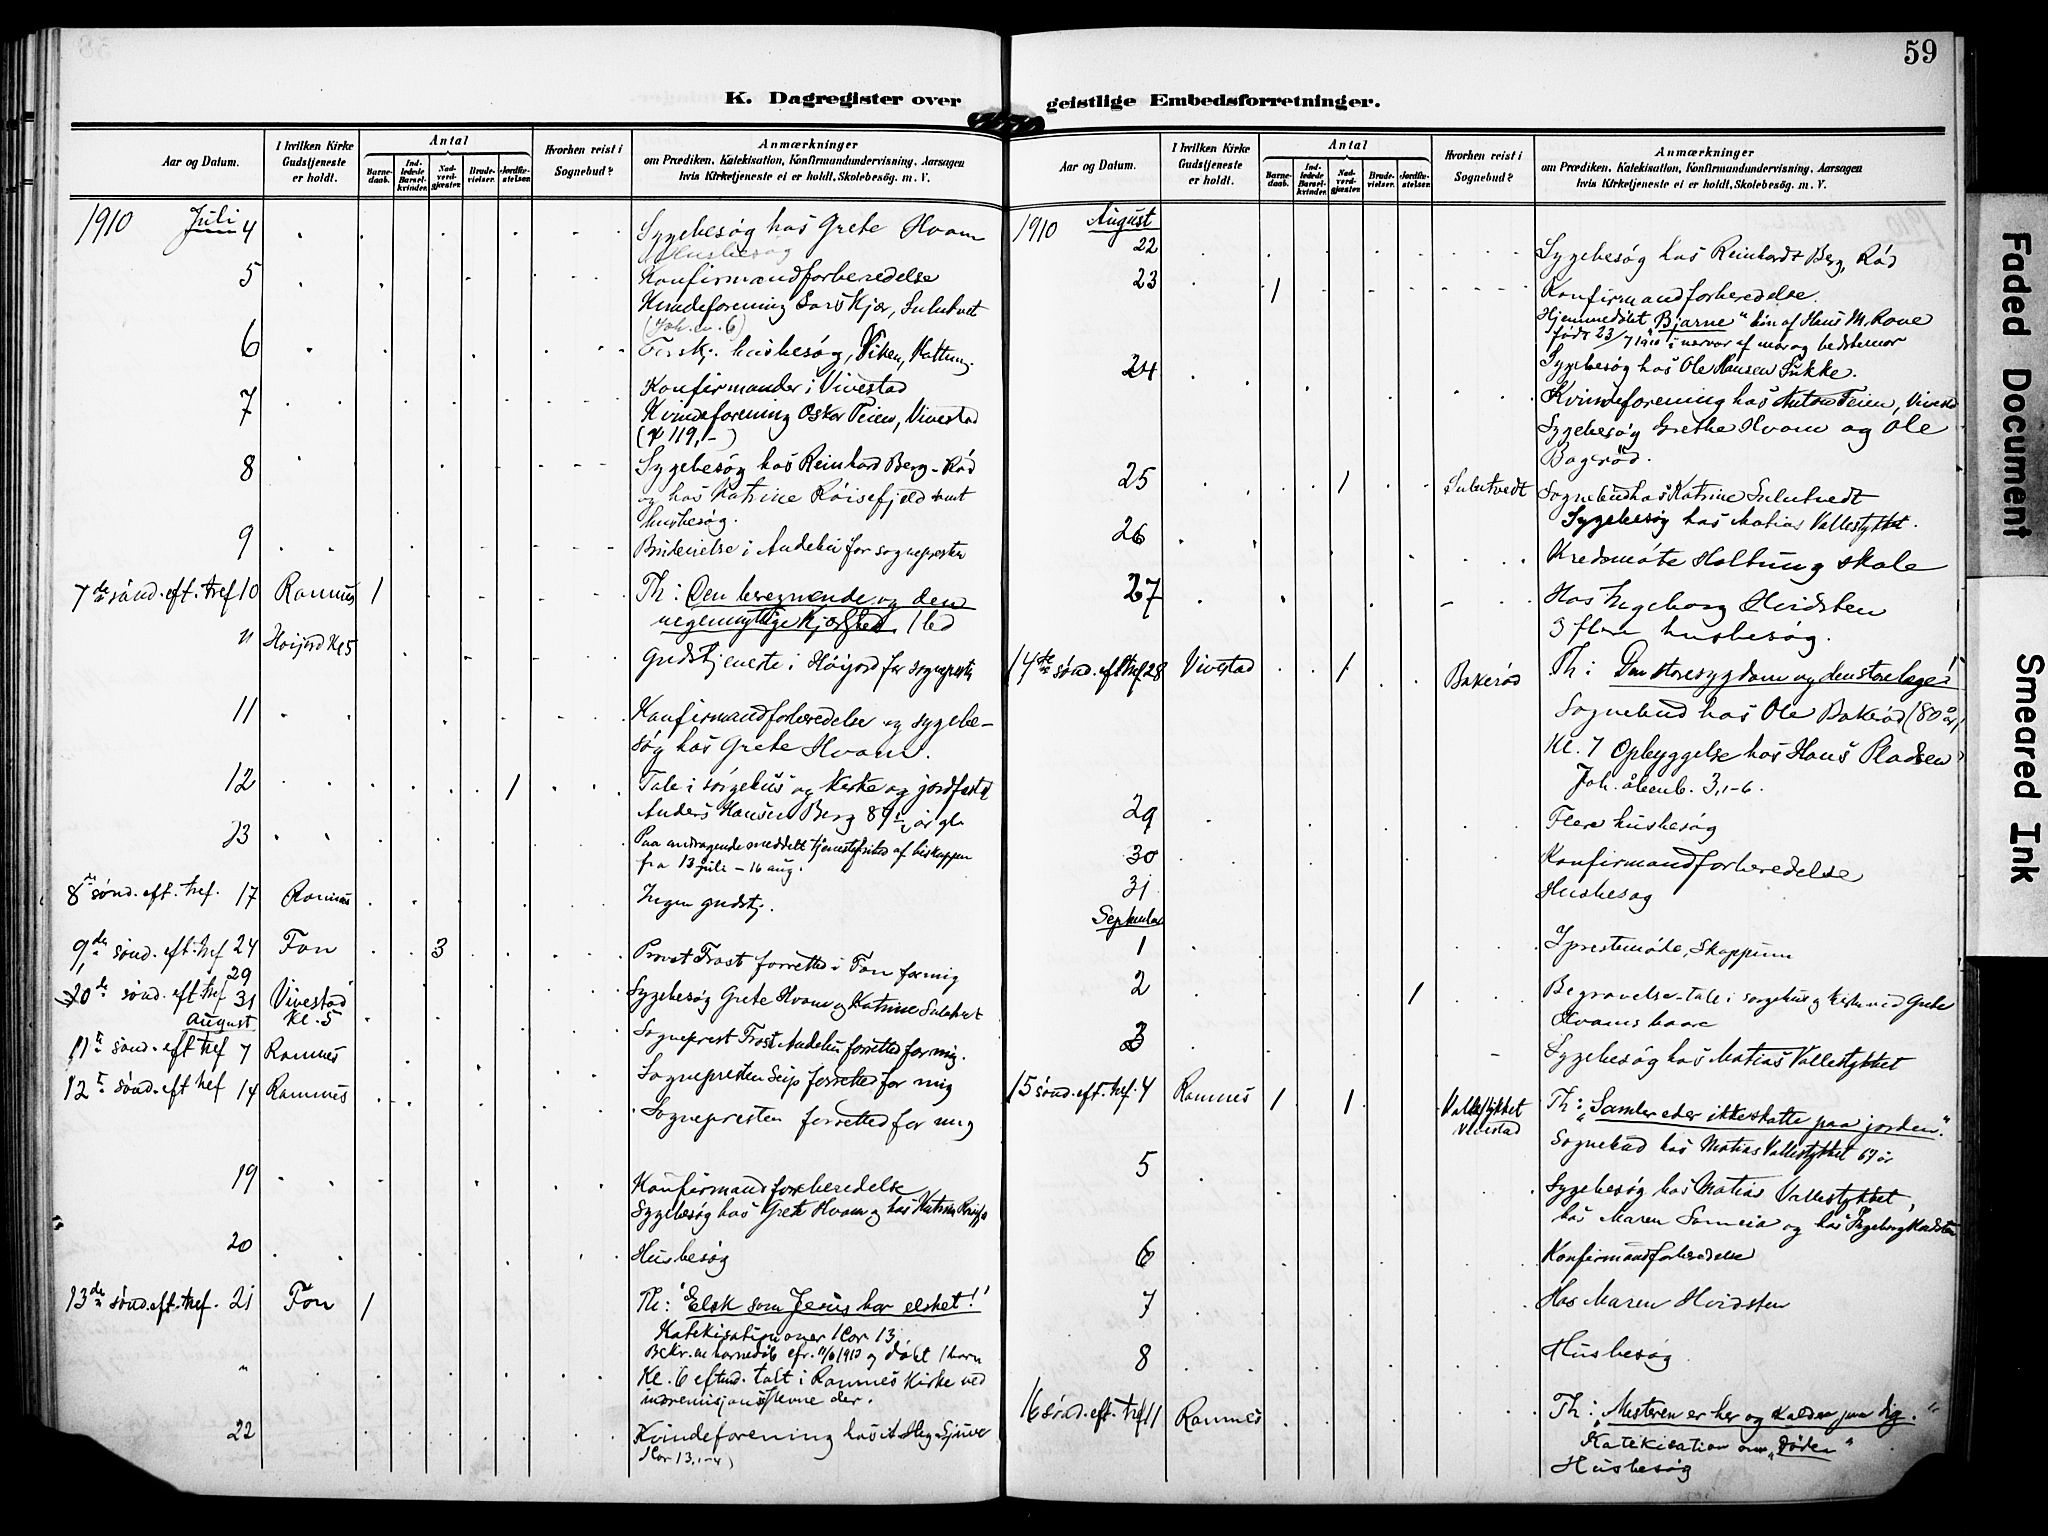 59
K. Dagregister over geistlige Embedsforretninger.
Aar og Datum.
I hvilken Kirke Gudstjeneste er holdt.
Antal
Barne- daab.
Ind- ledede Barsel- kvinder.
Nad- verd- gjæster.
Brude- vielser.
Jordfæ- stelser.
Hvorhen reist i Sognebud?
Anmærkninger
om Prædiken, Katekisation, Konfirmandundervisning, Aarsagen
hvis Kirketjeneste ei er holdt, Skolebesög. m. V.
1910 Juli 4 Sygebesøg hos Grete Hvam
Husbesøg
5 Konfirmandforberedelse
Kvindeforening Lars Kjær, Sulutvet
(Joh. ev. 6)
6 Forskj. husbesøg, Viken,
7 Konfirmander i Vivestad
Kvindeforening Oskar Teien, Vivestad
(119,-)
8 Sygebesøg hos Reinhard Berg - Rød
og hos Katrine Röisefjeld samt
husbesøg.
9 Brudevielse i Andebu for sognepresten
7de sønd. eft. tref 10 Ramnes 1 Th: Den beregnende og den
uegennyttige Kjærlighed. 1 led
" Höijord Kl 5 Gudstjeneste i Höijord for sognepresten
11 Konfirmandforberedelse og sygebe-
søg hos Grete Hvam.
12 1 Tale i sørgehus og Kirke og jordfæstet
Anders Hansen Berg 89 år gl.
23 Paa andragende meddelt tjenestefrihed af biskoppen
fra 13 juli - 16 aug.
8de sønd. eft. tref. 17 Ramnes Ingen gudstj.
9de sønd. eft. tref 24 Fon 3 Provst Frost forretted i Fon for mig
29
10de sønd. eft tref 31 Vivestad Sygebesøg Grete Hvam og Katrine Sulutvet
August Kl. 5
Sogneprest Frost Andebu forrettet for mig.
11te sønd. eft tref 7 Ramnes
Sognepresten Seip forrettet for mig
12te sønd. eft tref 14 Ramnes
Sognepresten forrettet for mig
19 Konfirmandforberedelse
Sygebesøg hos Grete Hvam og hos Katrine
20 Husbesøg
13de sønd. eft. tref. 21 Fon 1 Th: "Elsk som Jesus har elsket!"
Katekisation over 1 Cor 13.
Bekr. en barnedåb efr. 1910 og døbt 1 barn
" Kl. 6 eftmd. talt i Ramnes Kirke ved
indremisjonsstevne der.
22 Kvindeforening hos
1 Cor 13, 1-4)
K. Dagregister over geistlige Embedsforretninger.
Aar og Datum.
I hvilken Kirke Gudstjeneste er holdt.
Antal
Barne- daab.
Ind- ledede Barsel- kvinder.
Nad- verd- gjæster.
Brude- vielser.
Jordfæ- stelser.
Hvorhen reist i Sognebud?
Anmærkninger
om Prædiken, Katekisation, Konfirmandundervisning, Aarsagen
hvis Kirketjeneste ei er holdt, Skolebesög. m. V.
1910 August
22 Sygebesøg hos Reinhardt Berg, Rød
23 1 Konfirmandforberedelse.
Hjemmedøbt "Bjarne" søn af Hans M. Rove
født 23/7 1910 i nærvær af mor og bedstemor
24 Sygebesøg hos Ole Hansen Sukke.
Kvindeforening hos Anton Teien, Vivestad
Sygebesøg Grethe Hvam og Ole
Bagerød.
25 1 Sulutvedt Sognebud hos Katrine Sulutvedt
Sygebesøg hos Matias Vallestykket.
26 Kredsmøte Haltung skole
27 Hos Ingeborg Hvidsten
3 flere husbesøg.
14de sønd. eft tref 28 Vivestad 1 Bakerød Th: Den store sygdom og den store læge!
Sognebud hos Ole Bakerød (80 år)
Kl. 7 Opbyggelse hos Hans Pladsen
Joh. åbenb. 3, 1-6.
29 Flere husbesøg
30 Konfirmandforberedelse
31 Husbesøg
September
1 I prestemøde, Skoppum
2 1 Begravelse - tale i sørgehus og Kirke ved Grete
Hvams baare
3 Sygebesøg hos Matias Vallestykket
15 sønd. eft. tref. 4 Ramnes 1 1 Vallestykket Vivestad Th: "Samler eder ikke skatte paa jorden."
Sognebud hos Matias Vallestykket 67 år
5 Sygebesøg hos Matias Vallestykket,
hos Maren og hos Ingeborg Hvidsten
6 Konfirmandforberedelse
7 Hos Maren Hvidsten
8 Husbesøg
16 sønd. eft. tref 11 Ramnes Th: "Mesteren er her og kalder paa dig."
Katekisation om "Døden"
Husbesøg
Faded Document
Smeared Ink